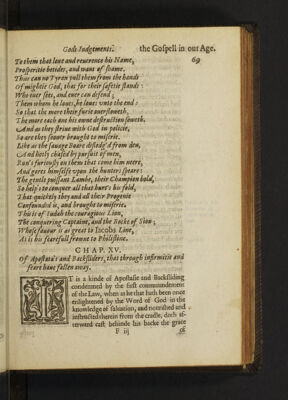 Gods Iudgements. the Gospell in our Age.
69
To them that loue and reuerence his Name,
Prosperitie betides, and want of shame.
Thus can no Tyran pull them from the hands
Of mightie God, that for their safetie stands:
Who euer sees, and euer can defend;
Them whom he loues, he loues vnto the end:
So that the more their furie ouerfloweth,
The more each one his owne destruction soweth.
And as they striue with God in policie,
So are they sooner brought to miserie.
Like as the sauage Boare dislodg'd from den,
And hotly chased by pursuit of men,
Run's furiously on them that come him neere,
And gores himselfe vpon the hunters speare:
The gentle puissant Lambe, their Champion bold,
So help's to conquer all that hurt's his fold,
That quickly they and all their Progenie
Confounded is, and brought to miserie.
This is of Iudah the couragious Lion,
The conquering Captaine, and the Rocke of Sion;
Whose fauour is as great to Iacobs Line,
As is his fearefull frowne to Philistine.
CHAP. XV.
Of Apostata's and Backsliders, that through infirmitie and
feare haue fallen away.
IT is a kinde of Apostasie and Backsliding
condemned by the first commandement
of the Law, when as he that hath been once
enlightened by the Word of God in the
knowledge of saluation, and nourished and
instructed therein from the cradle, doth af-
terward cast behinde his backe the grace
F iij of